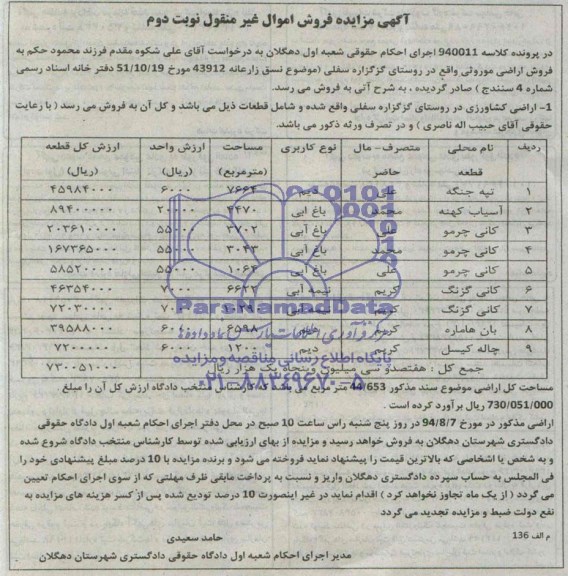 آگهی مزایده فروش اموال غیر منقول نوبت دوم
در پرونده کلاسه 940011 اجرای احکام حقوقی شعبه اول دهگلان به درخواست آقای علی شکوه مقدم فرزند محمود حکم به
فروش اراضی موروثی واقع در روستای گزگزاره سفلی (موضوع نسق زارعانه 43912 مورخ 51/10/19 دفتر خانه اسناد رسمی
شماره 4 سنندج ) صادر گردیده ، به شرح آتی به فروش می رسد.
1- اراضی کشاورزی در روستای گزگزاره سفلی واقع شده و شامل قطعات ذیل می باشد و کل آن به فروش می رسد ( با رعایت
حقوقی آقای حبیب اله ناصری ) و در تصرف ورثه ذکور می باشد.
ردیف نام محلی قطعه متصرف – مال حاضر نوع کاربری مساحت (مترمربع) ارزش واحد (ریال) ارزش کل قطعه (ریال)
۱ تپه جنگه علی دیم ۷۶۶۴ ۶۰۰۰ ۴۵۹۸۴۰۰۰
۲ آسیاب کهنه محمد باغ آبی ۴۴۷۰ ۲۰۰۰۰ ۸۹۴۰۰۰۰۰
۳ کانی چرمو علی باغ آبی ۳۷۰۲ ۵۵۰۰۰ ۲۰۳۶۱۰۰۰۰
۴ کانی چرمو محمد باغ آبی ۳۰۴۳ ۵۵۰۰۰ ۱۶۷۳۶۵۰۰۰
۵ کانی چرمو علی باغ آبی ۱۰۶۴ ۵۵۰۰۰ ۵۸۵۲۰۰۰۰
۶ کانی گزنگ کریم نیمه آبی ۶۶۲۲ ۷۰۰۰ ۴۶۳۵۴۰۰۰
۷ کانی گزنگ ۷۲۰۳۰۰۰۰
۸ بان هاماره کریم دیم ۶۵۹۸ ۶۰۰۰ ۳۹۵۸۸۰۰۰
۹ چاله کیسل کریم دیم ۱۲۰۰ ۶۰۰۰ ۷۲۰۰۰۰۰
جمع کل : هفتصدو سی میلیون وپنجاه یک هزار ریال ۷۳۰۰۵۱۰۰۰
مساحت کل اراضی موضوع سند مذکور 44/653 متر مربع می باشد که کارشناس منتخب دادگاه ارزش کل آن را مبلغ
730/051/000 ریال برآورد کرده است .
اراضی مذکور در مورخ 94/8/7 در روز پنج شنبه راس ساعت 10 صبح در محل دفتر اجرای احکام شعبه اول دادگاه حقوقی
دادگستری شهرستان دهگلان به فروش خواهد رسید و مزایده از بهای ارزیابی شده توسط کارشناس منتخب دادگاه شروع شده
و به شخص یا اشخاصی که بالاترین قیمت را پیشنهاد نماید فروخته می شود و برنده مزایده با 10 درصد مبلغ پیشنهادی خود را
فی المجلس به حساب سپرده دادگستری دهگلان واریز و نسبت به پرداخت مابقی ظرف مهلتی که از سوی اجرای احکام تعیین
می گردد ( از یک ماه تجاوز نخواهد کرد ) اقدام نماید در غیر اینصورت 10 درصد تودیع شده پس از کسر هزینه های مزایده به
نفع دولت ضبط و مزایده تجدید می گردد
م الف 136
حامد سعیدی
مدیر اجرای احکام شعبه اول دادگاه حقوقی دادگستری شهرستان دهگلان
ParsNamadData
مرکز فرآوری اطلاعات پارس نماد داده ها
پایگاه اطلاع رسانی مناقصه و مزایده
۰۲۱-۸۸۳۴۹۶۷۰-۵